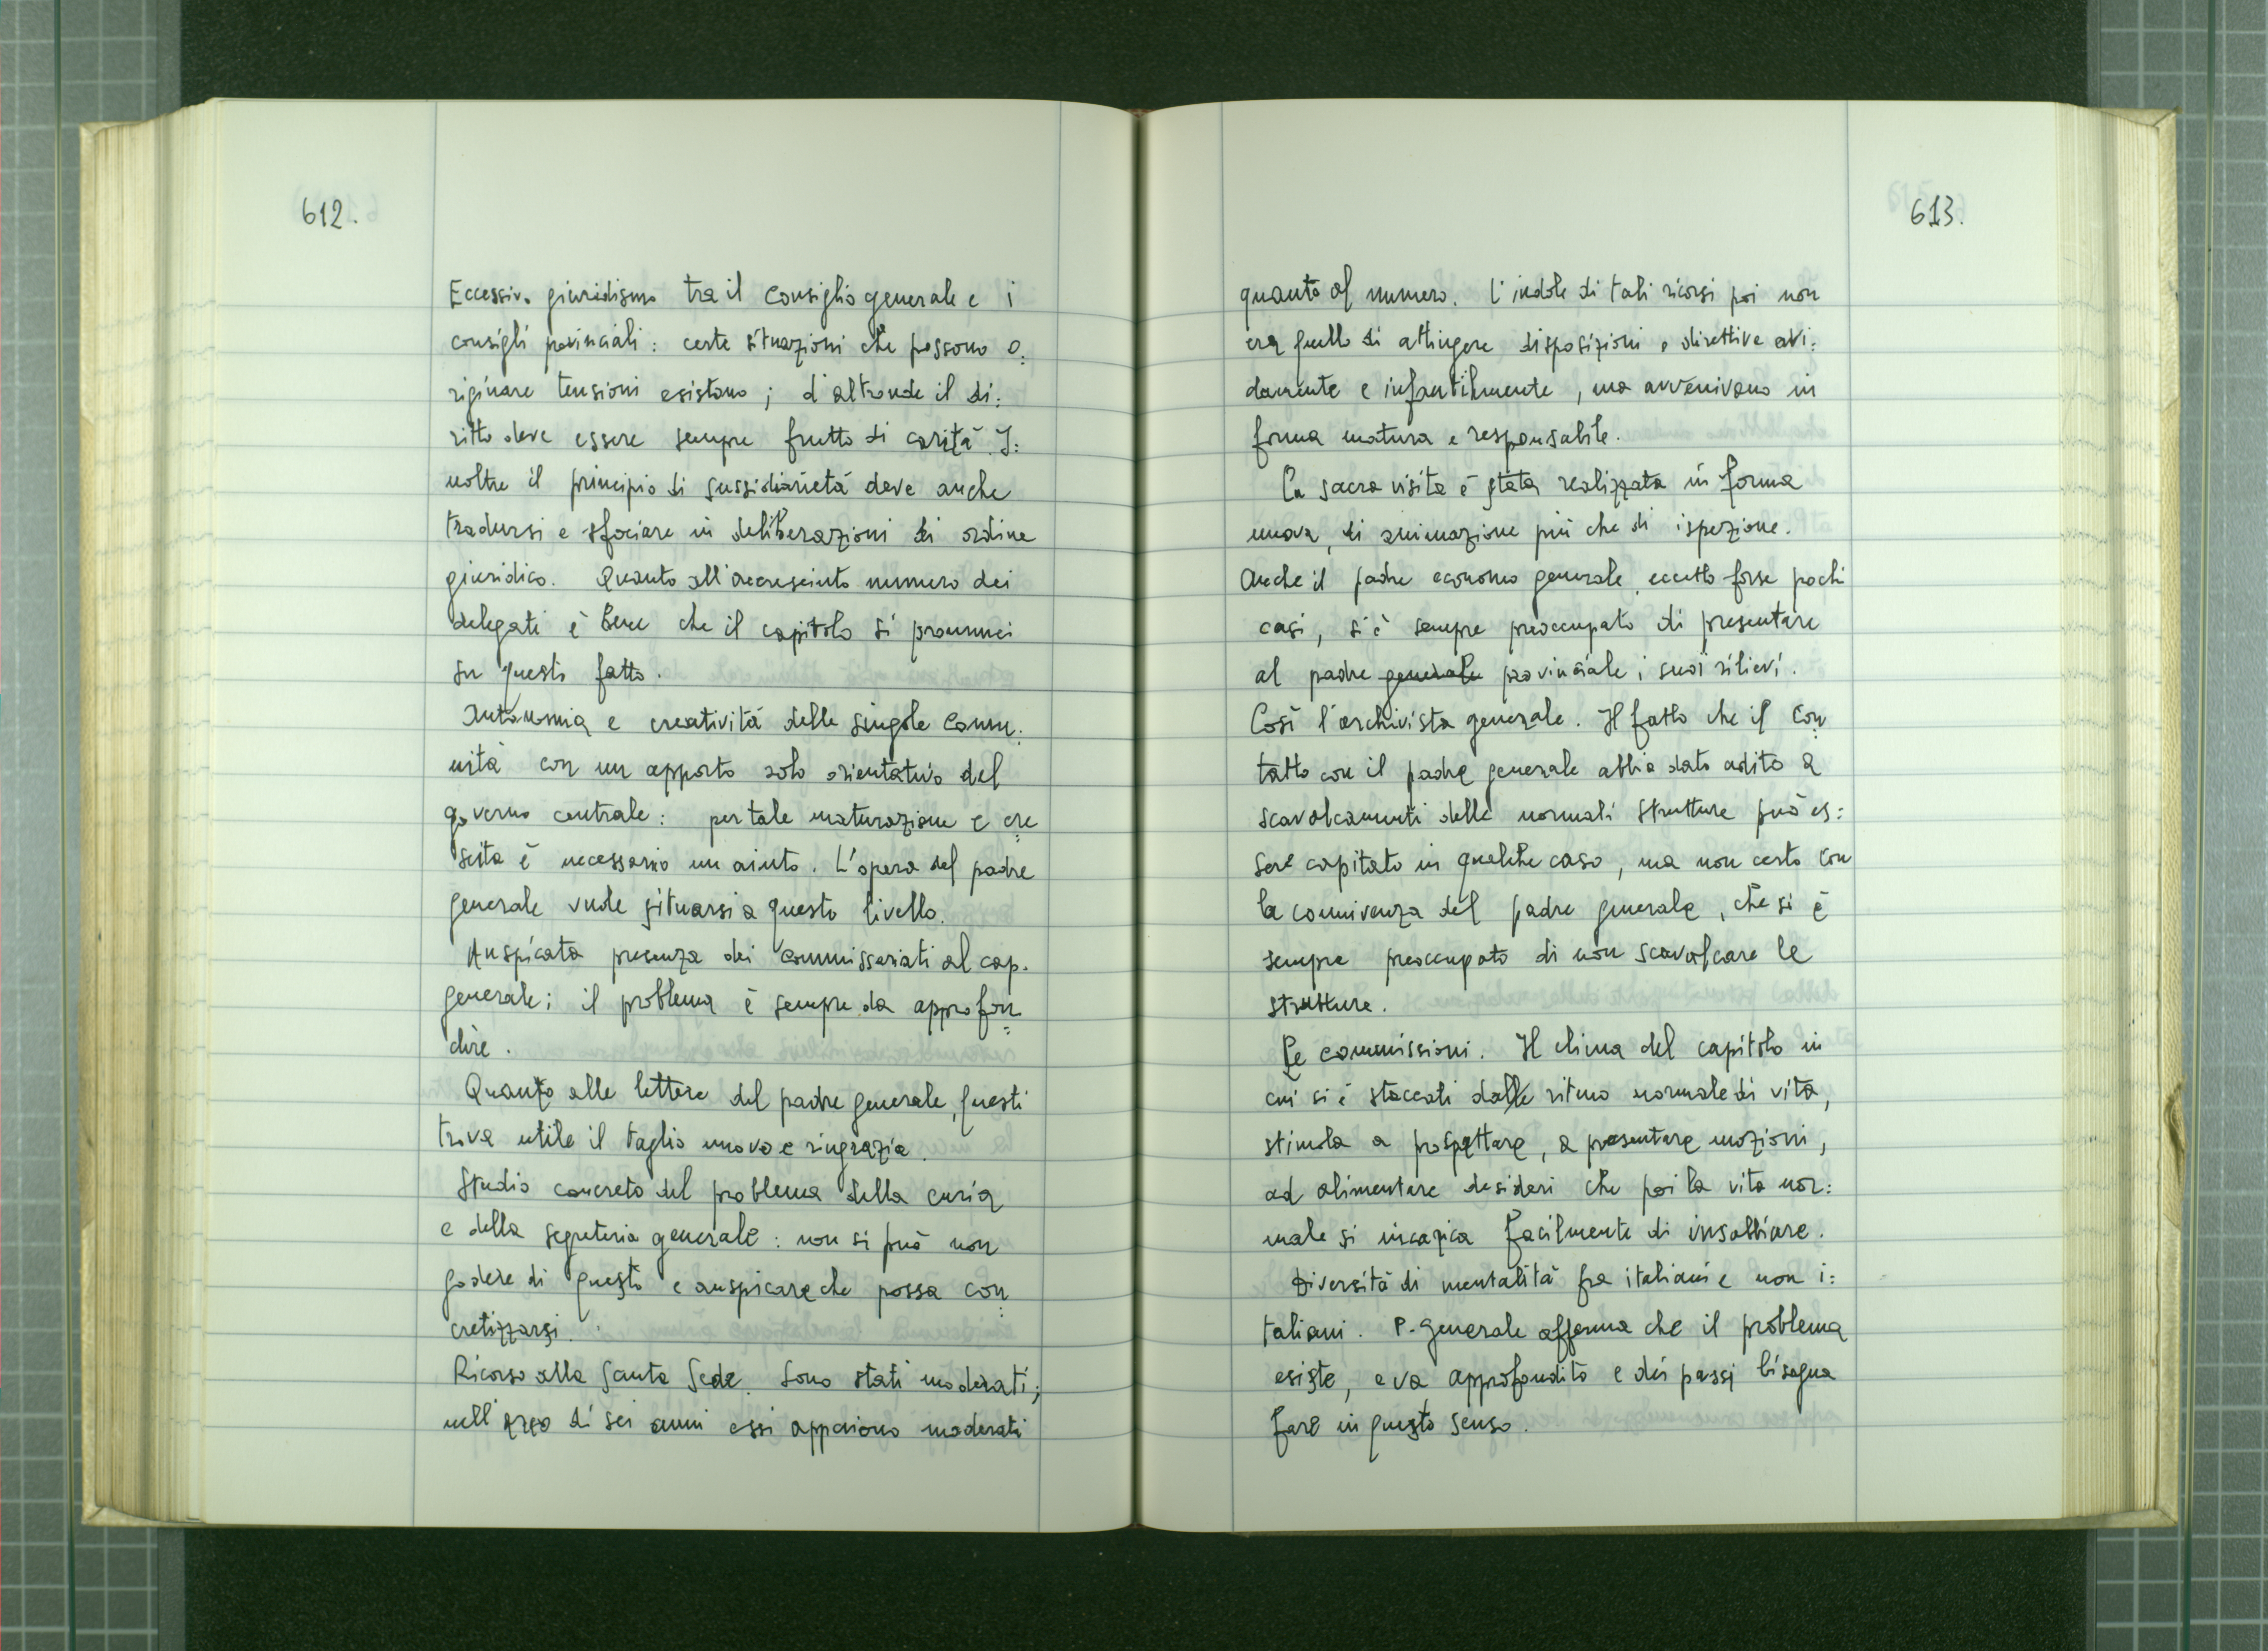 612.
Eccessivo giuridismo tra il Consiglio generale e i
consigli provinciali: certe situazioni che possono o:
riginare tensioni esistono; d'altronde il di:
ritto deve essere sempre frutto di carità. I:
noltre il principio di sussidiarietà deve anche
tradursi e sfociare in deliberazioni di ordine
giuridico. Quanto all'accresciuto numero dei
delegati è bene che il capitolo si pronunci
su questo fatto.
Autonomia e creatività delle singole comu:
nità con un apporto solo orientativo del
governo centrale: per tale maturazione e cre
scita è necessario un aiuto. L'opera del padre
generale vuole situarsi a questo livello.
Auspicata presenza dei commissariati al cap.
generale; il problema è sempre da approfon
dire.
Quanto alle lettere del padre generale, questi
trova utile il taglio nuovo e ringrazia.
Studio concreto del problema della curia
e della segreteria generale: non si può non
godere di questo e auspicare che possa con
cretizzarsi.
Ricorso alla Santa Sede. Sono stati moderati;
nell'arco di sei anni essi appaiono moderati
613.
quanto al numero. L'indole di tali ricorsi poi non
era quello di attingere disposizioni o direttive avi:
damente e infantilmente, ma avvenivano in
forma matura e responsabile.
La sacra visita è stata realizzata in forma
nuova, di animazione più che di ispezione.
Anche il padre economo generale, eccetto forse pochi
casi, si è sempre preoccupato di presentare
al padre generale provinciale i suoi rilievi.
Così l'archivista generale. Il fatto che il con
tatto con il padre generale abbia dato adito a
scavalcamenti delle normali strutture può es:
sere capitato in qualche caso, ma non certo con
la connivenza del padre generale, che si è
sempre preoccupato di non scavalcare le
strutture.
Le commissioni. Il clima del capitolo in
cui si è staccati dalle ritmo normale di vita,
stimola a prospettare, a presentare mozioni,
ad alimentare desideri che poi la vita nor:
male si incarica facilmente di insabbiare.
Diversità di mentalità fra italiani e non i:
taliani. P. Generale afferma che il problema
esiste, e va approfondito e dei passi bisogna
fare in questo senso.